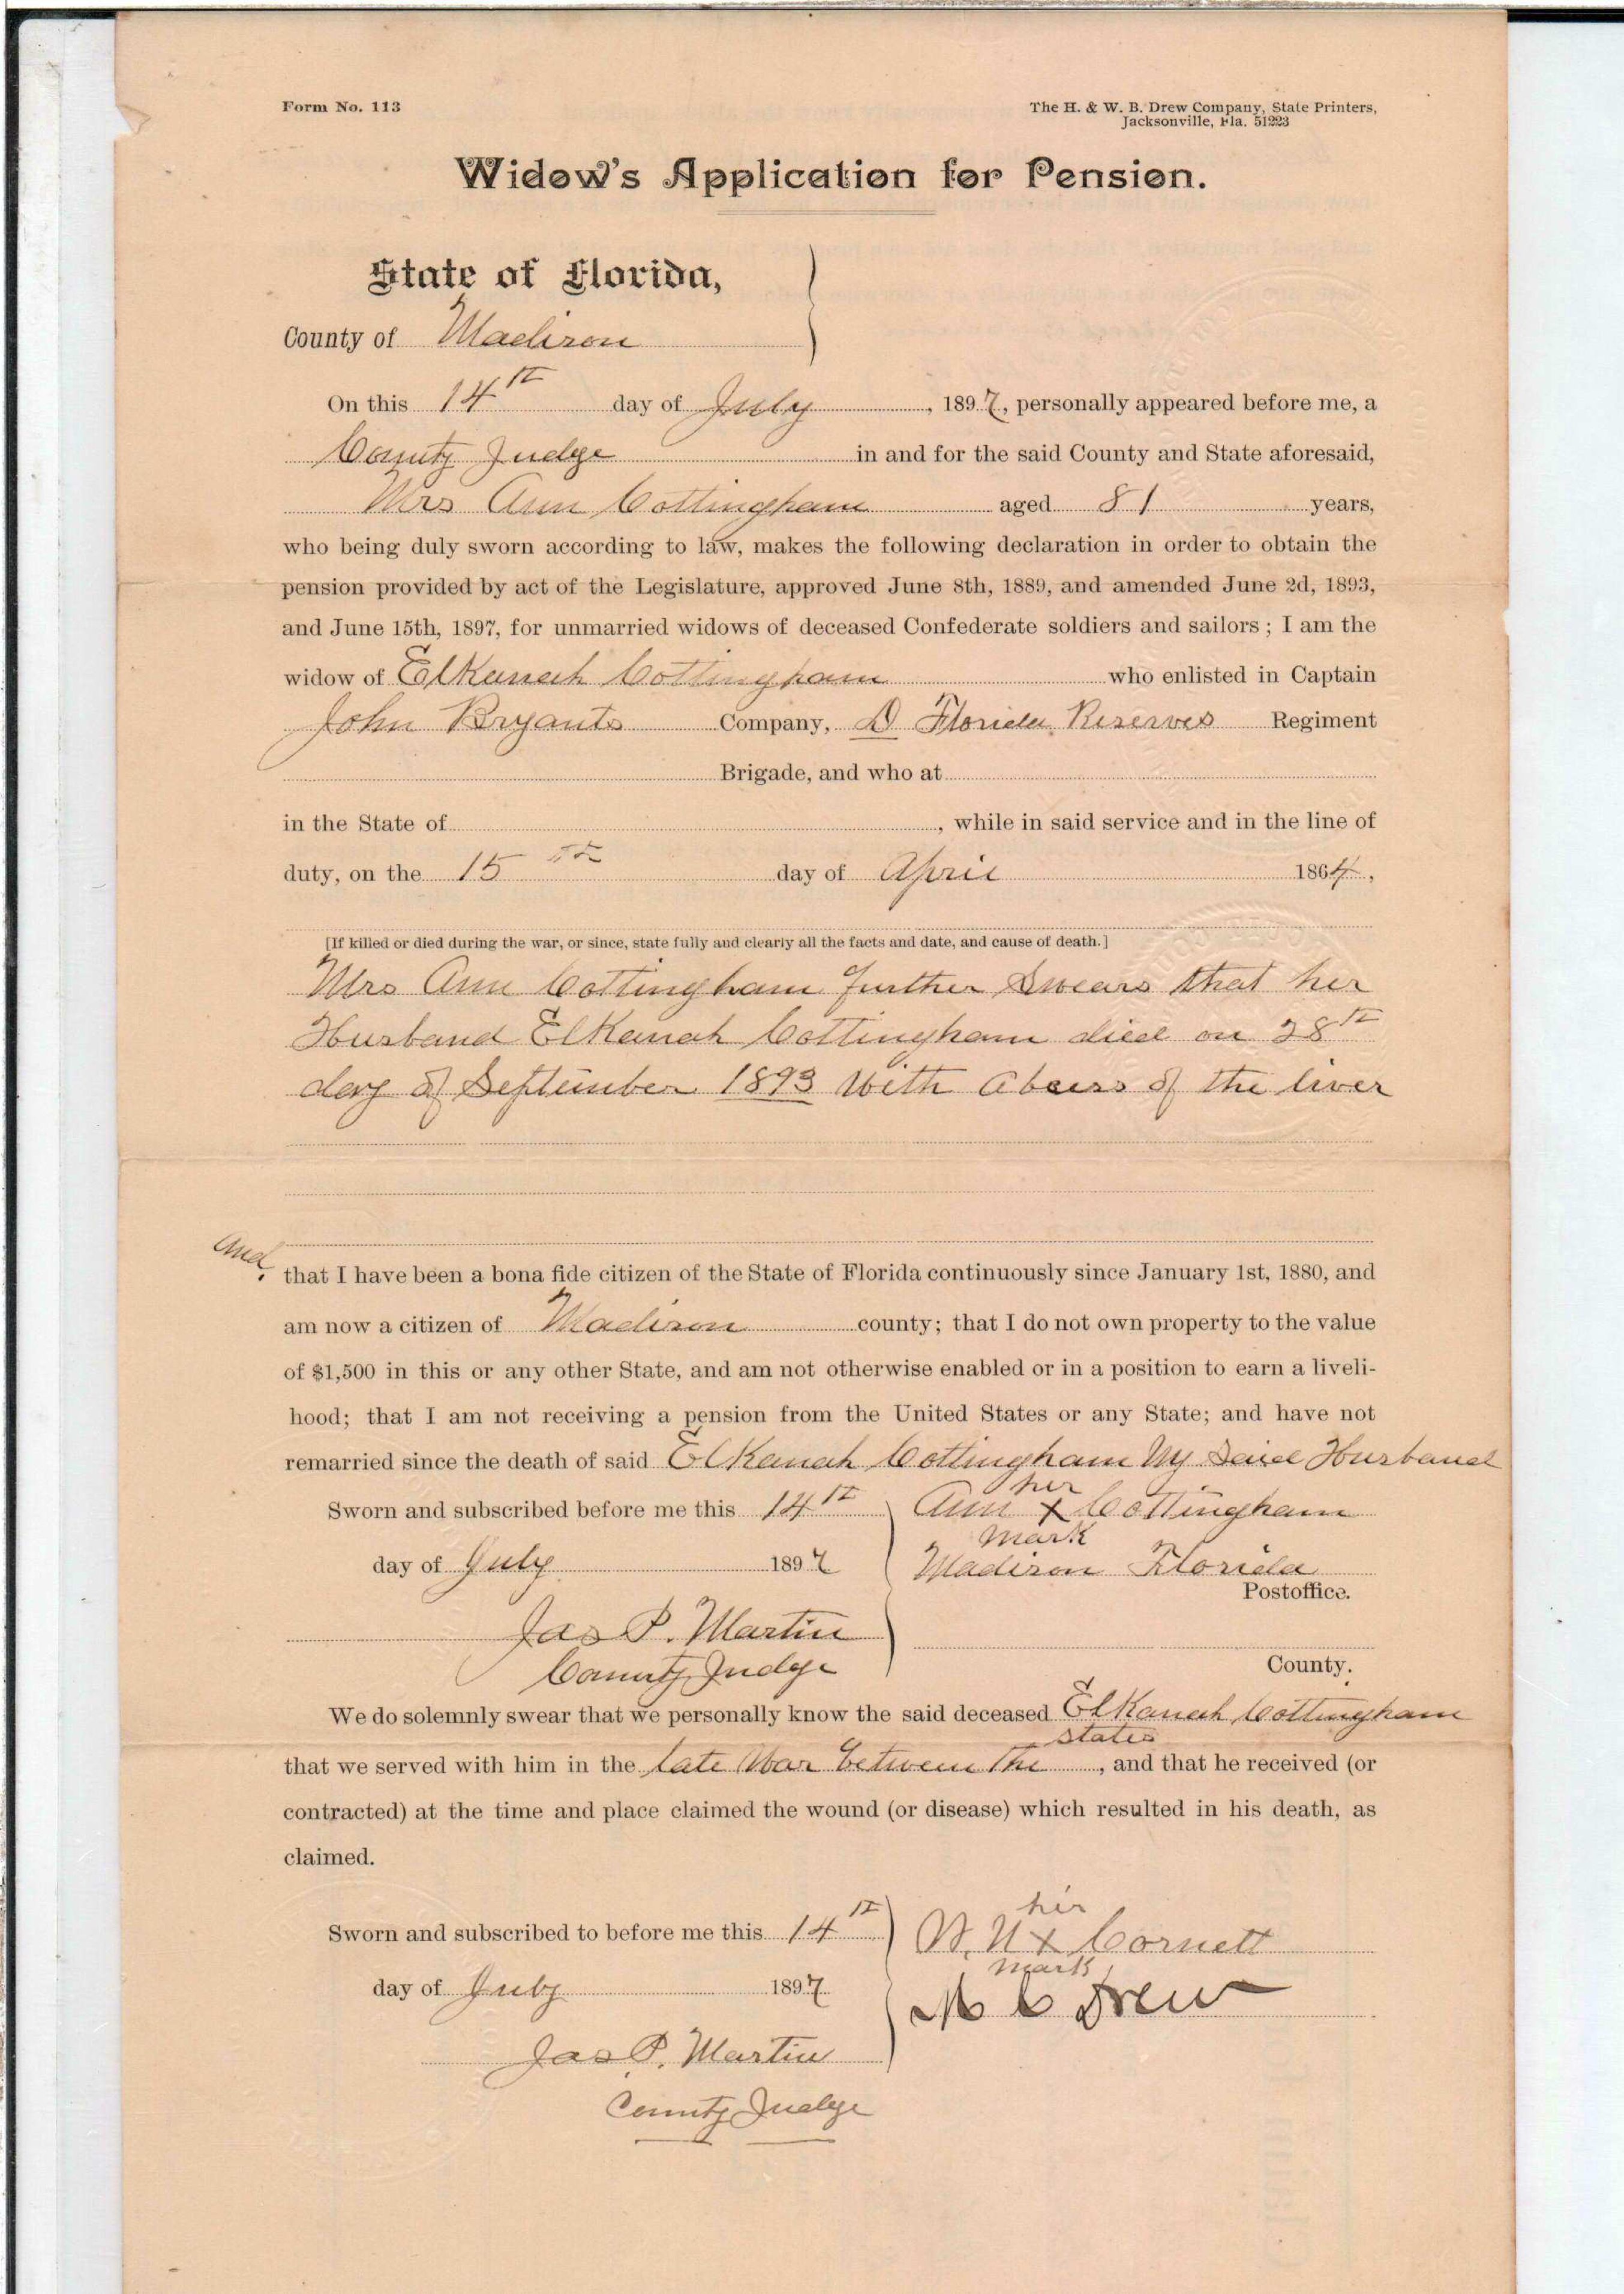 Form No. 113
The H. & W. B. Drew Company, State Printers,
Jacksonville, Fla. 51223
Widow's Application for Pension.
State of Florida,
County of Madison
On this 14th day of July, 1897, personally appeared before me, a
County Judge in and for the said County and State aforesaid,
Mrs Ann Cottingham aged 81 years,
who being duly sworn according to law, makes the following declaration in order to obtain the
pension provided by act of the Legislature, approved June 8th, 1889, and amended June 2d, 1893,
and June 15th, 1897, for unmarried widows of deceased Confederate soldiers and sailors; I am the
widow of ElKanah Cottingham who enlisted in Captain
John Bryants Company, D Florida Reserves Regiment
Brigade, and who at
in the State of, while in said service and in the line of
duty, on the 15th day of April 1864,
[If killed or died during the war, or since, state fully and clearly all the facts and date, and cause of death.]
Mrs Ann Cottingham further Swears that her
Husband ElKanah Cottingham died on 28th
day of September 1893 With Abcess of the liver
and
that I have been a bona fide citizen of the State of Florida continuously since January 1st, 1880, and
am now a citizen of Madison county; that I do not own property to the value
of $1,500 in this or any other State, and am not otherwise enabled or in a position to earn a liveli-
hood; that I am not receiving a pension from the United States or any State; and have not
remarried since the death of said ElKanah Cottingham My Said Husband
her
Sworn and subscribed before me this 14th Ann x Cottingham
mark
day of July 1897 Madison Florida
Postoffice.
Jas P. Martin
County Judge
County.
We do solemnly swear that we personally know the said deceased ElKanah Cottingham
states
that we served with him in the late War between the, and that he received (or
contracted) at the time and place claimed the wound (or disease) which resulted in his death, as
claimed.
his
Sworn and subscribed to before me this 14th W. N x Cornett
mark
day of July 1897 Drew
Jas P. Martin
County Judge